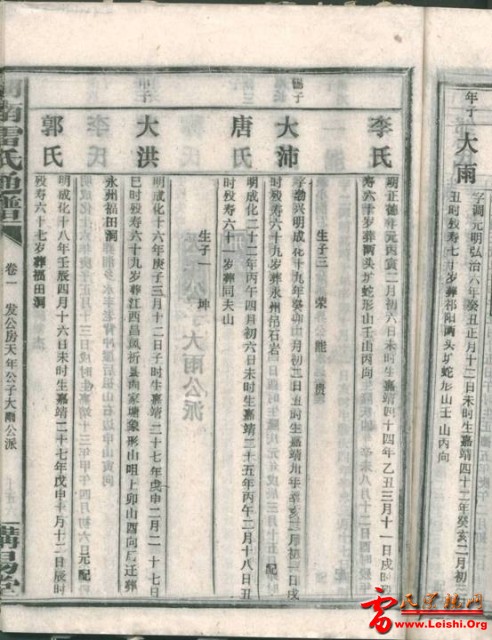 年子
大雨
字调元明弘治六年癸丑正月十二日未时生嘉靖四十二年癸亥二月初
丑时殁寿七十岁葬祁阳两头圹蛇形山壬山丙向
李氏
明正德元年丙寅二月初六日未时生嘉靖四十四年乙丑三月十一日戌时
寿六十岁葬两头圹蛇形山壬山丙向
生子三 荣 贵
锡子
大沛
字勃兴明成化十九年癸卯二月初二日丑时生嘉靖
时殁寿六十九岁葬永州吊石岩 配
唐氏
明成化二十二年丙午四月初六日未时生嘉靖二十五年丙午二月十八日丑
时殁寿六十一岁葬同夫山
生子一 坤
大洪
明成化十六年庚子三月十二日子时生嘉靖二十七年戊申二月二十七日
巳时殁寿六十九岁葬江西昌凤折县南家塘象形山咀上卯山酉向后迁葬
永州福田洞 元配
郭氏
明成化十八年壬辰四月十六日未时生嘉靖二十七年戊申十月十二日辰时
殁寿六十七岁葬福田洞
南雷氏通谱
卷一
发公房天年公子大雨公派
讲易堂
雷氏宗亲网
www.Leishi.Org